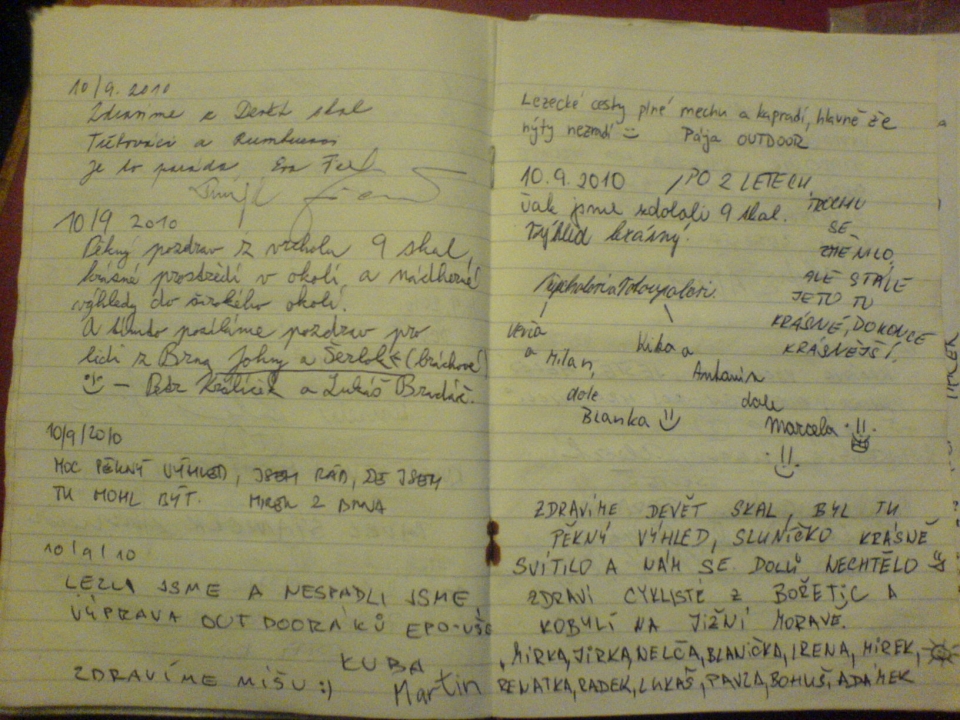 10/9. 2010
Zdravíme z Devíti skal
a
Je to paráda Eva
10/9 2010
Pěkný pozdrav z vrcholu 9 skal,
krásné prostředí v okolí a nádherné
výhledy do širokého okolí.
A tímto posíláme pozdrav pro
lidi z Brna Johny a
:) – Petr Králíček a Lukáš
10/9/2010
MOC PĚKNÝ VÝHLED, JSEM RÁD, ŽE JSEM
TU MOHL BÝT. MIREK Z BRNA
10/9/10
LEZLI JSME A NESPADLI JSME
VÝPRAVA OUTDOORÁKŮ EPO-UŠE
ZDRAVÍME MÍŠU :)
KUBA
Martin
Lezecké cesty plné mechu a kapradí, hlavně že
nýty nezmdí Pája OUTDOOR
10.9.2010
Tak jsme zdolali 9 skal.
Výhled krásný.
PO 2 LETECH
TROCHU
SE
ZMĚNILO,
ALE STÁLE
JE TO TU
KRÁSNÉ, DOKONCE
KRÁSNĚJŠÍ.
a Milan,
dole
Blanka :)
a
Antonín
dole
Marcela
ZDRAVÍME DEVĚT SKAL, BYL TU
PĚKNÝ VÝHLED, SLUNÍČKO KRÁSNĚ
SVÍTILO A NÁM SE DOLŮ NECHTĚLO
ZDRAVÍ CYKLISTÉ Z BOŘETIC A
KOBYLÍ NA JIŽNÍ MORAVĚ.
MIRKA, JIRKA, NELČA, BLANIČKA, IRENA, MIREK,
RENATKA, RADEK, LUKÁŠ, PAVLA, BOHUŠ, ADÁMEK